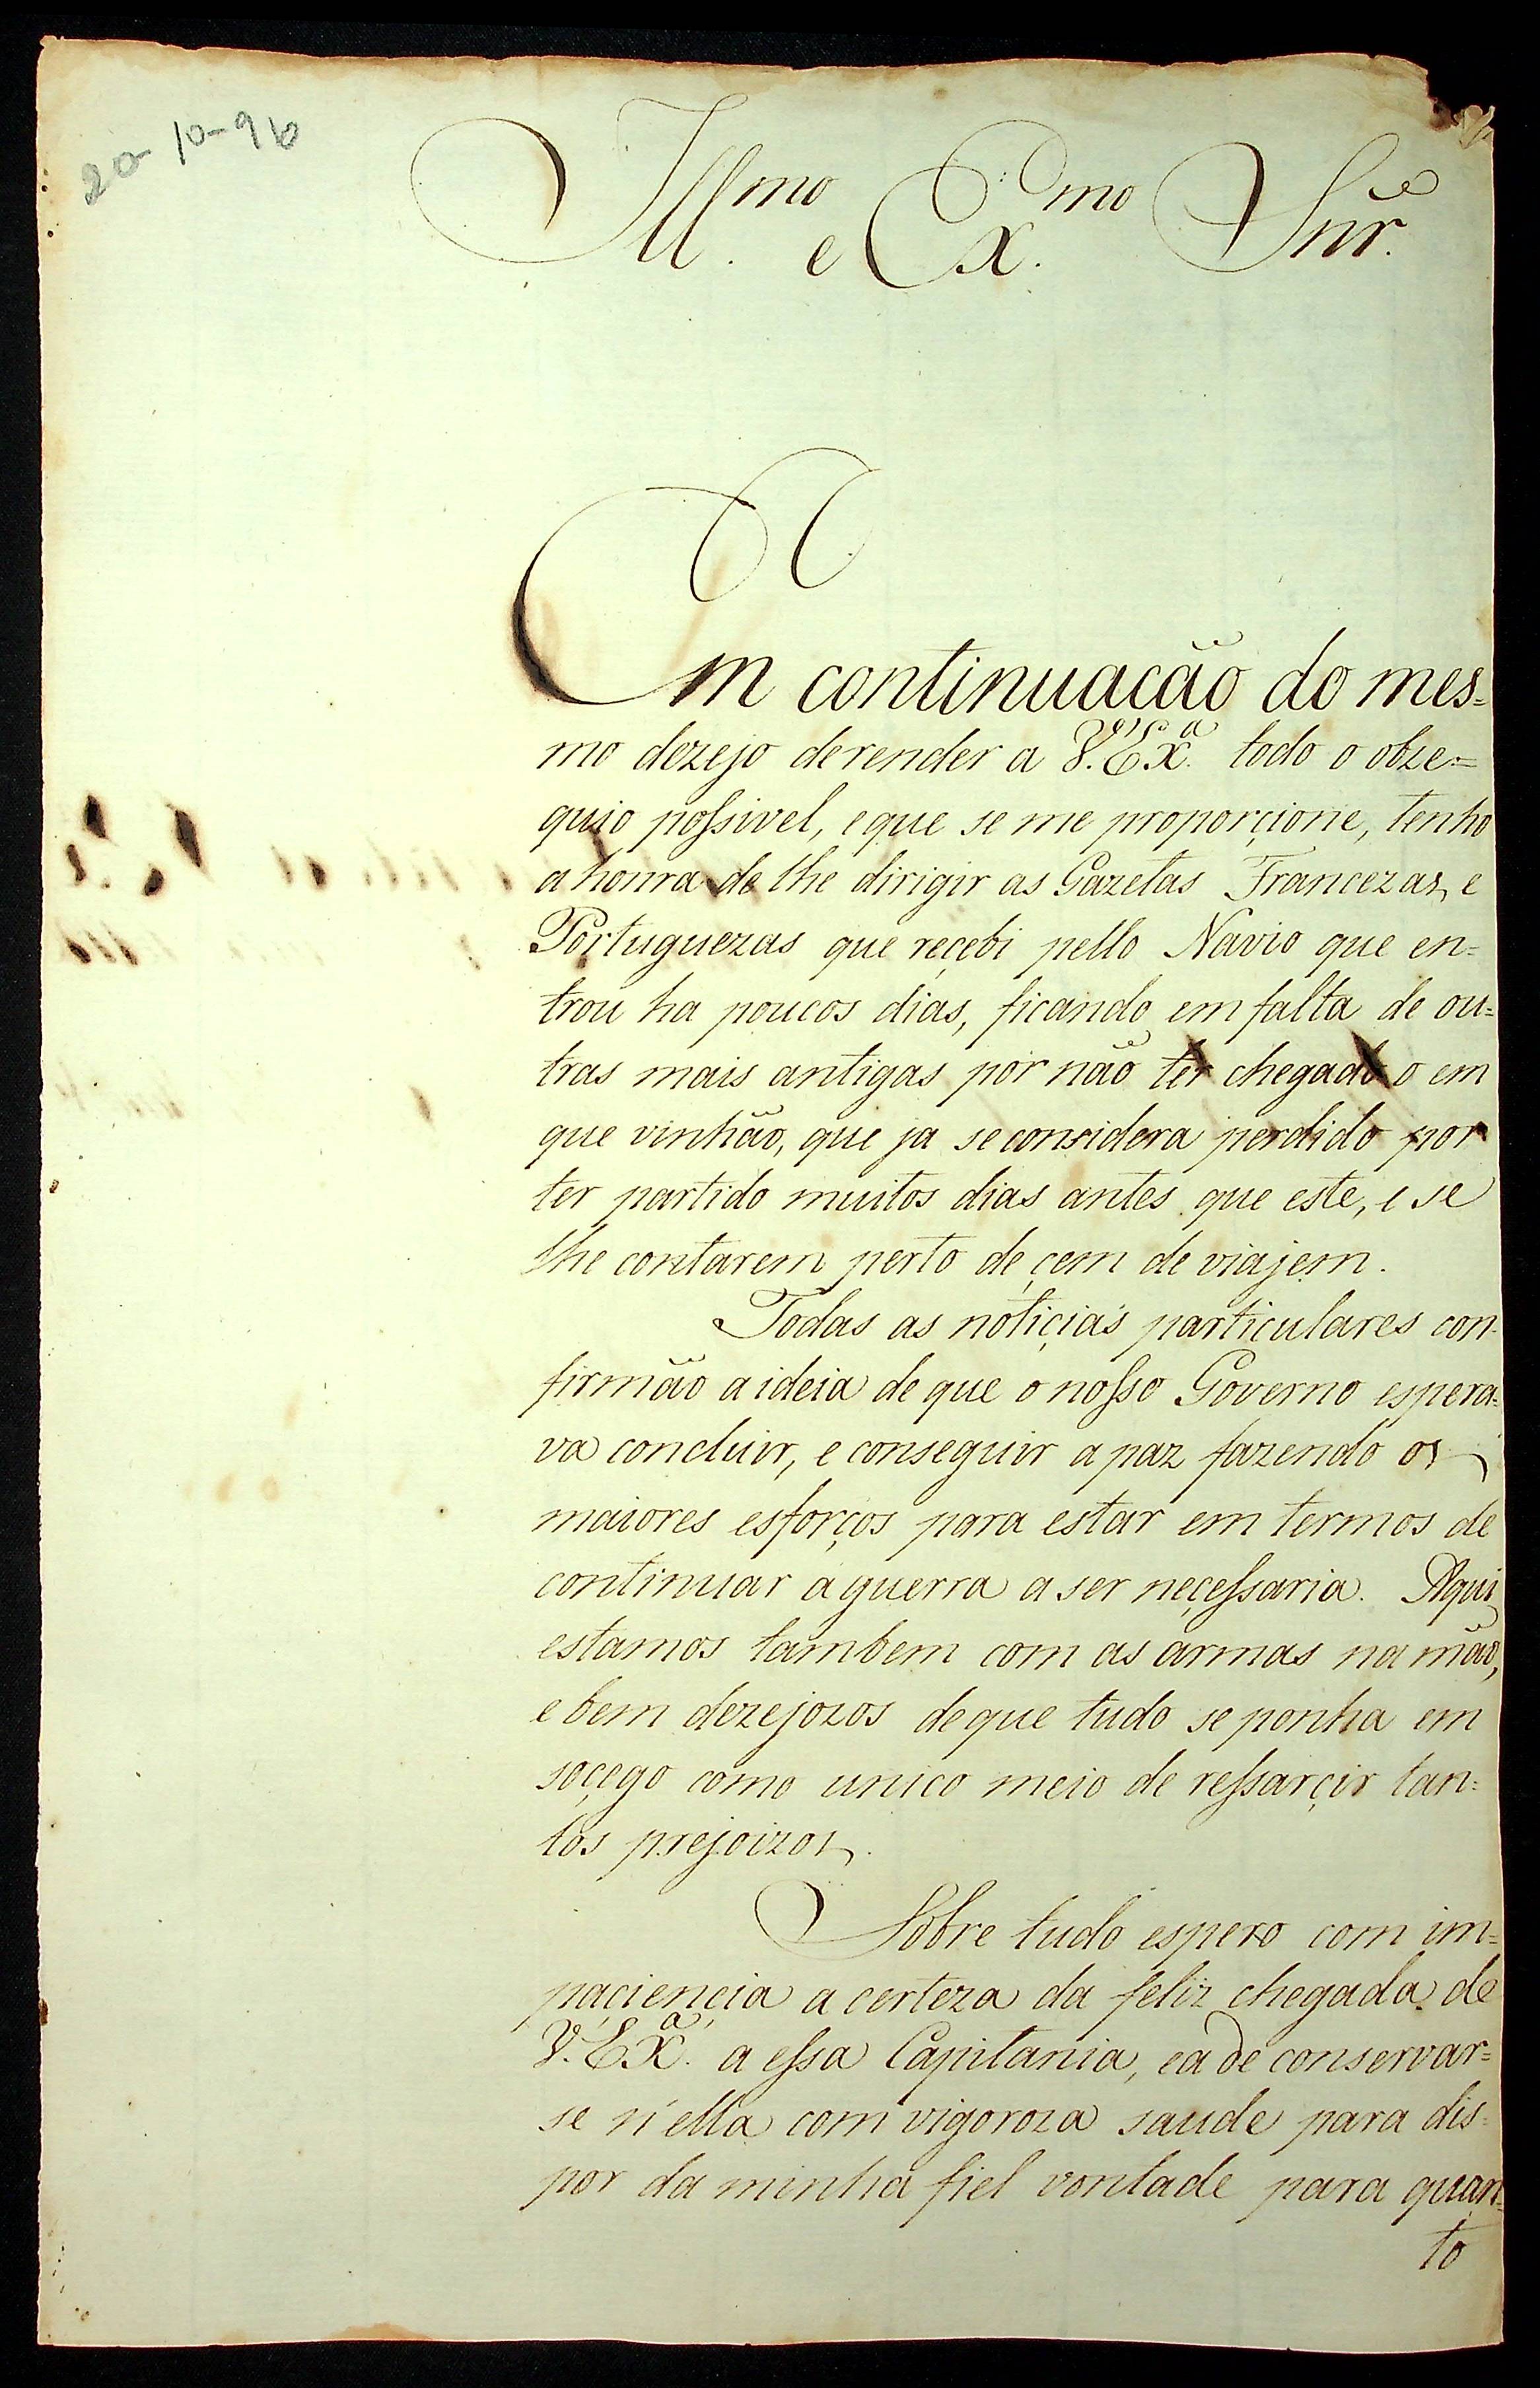 20-10-96
Ill.mo e Ex.mo Snr.
Em continuacão do mes=
mo dezejo derender a V. Ex.a todo o obze=
quio possivel, eque se me proporçione, tenho
ahonra de lhe dirigir as Gazetas Francezas, e
Portuguezas que reçebi pello Navio que en=
trou ha poucos dias, ficando em falta de ou=
tras mais antigas por não ter chegado o em
que vinhão, que ja seconsidera perdido por
ter partido muitos dias antes que este, e se
lhe contarem perto de çem de viajem.
Todas as notiçias particulares con-
firmão aideia de que onosso Governo espera=
va concluir, e conseguir apaz fazendo os
maiores esforços para estar em termos de
continuar aguerra aser neçessaria. Aqui
estamos tambem com as armas namão,
ebem dezejozos deque tudo se ponha em
soçego como unico meio de ressarçir tan=
tos prejoizos.
Sobre tudo espero com im=
paçiençia acerteza da feliz chegada de
V. Ex.a a essa Capitania, eade conservar=
se n'ella com vigoroza saude para dis=
por da minha fiel vontade para quan=
to